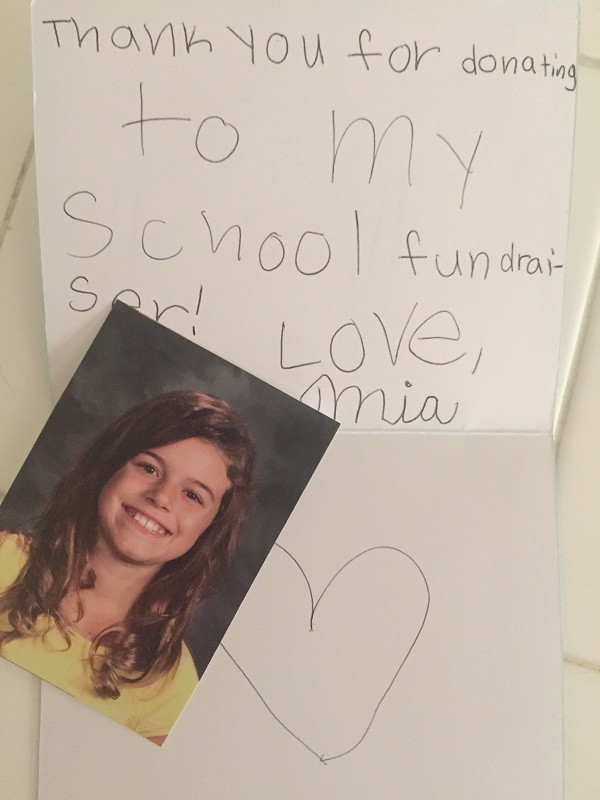 Thank you for donating
to my
School fundrai-
ser!
Love,
Mia